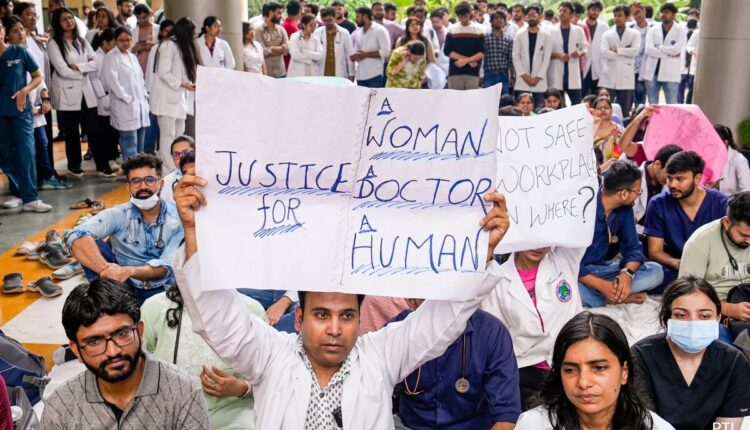 JUSTICE
FOR
A
WOMAN
A
DOCTOR
A
HUMAN
NOT SAFE
WHERE?
PTI